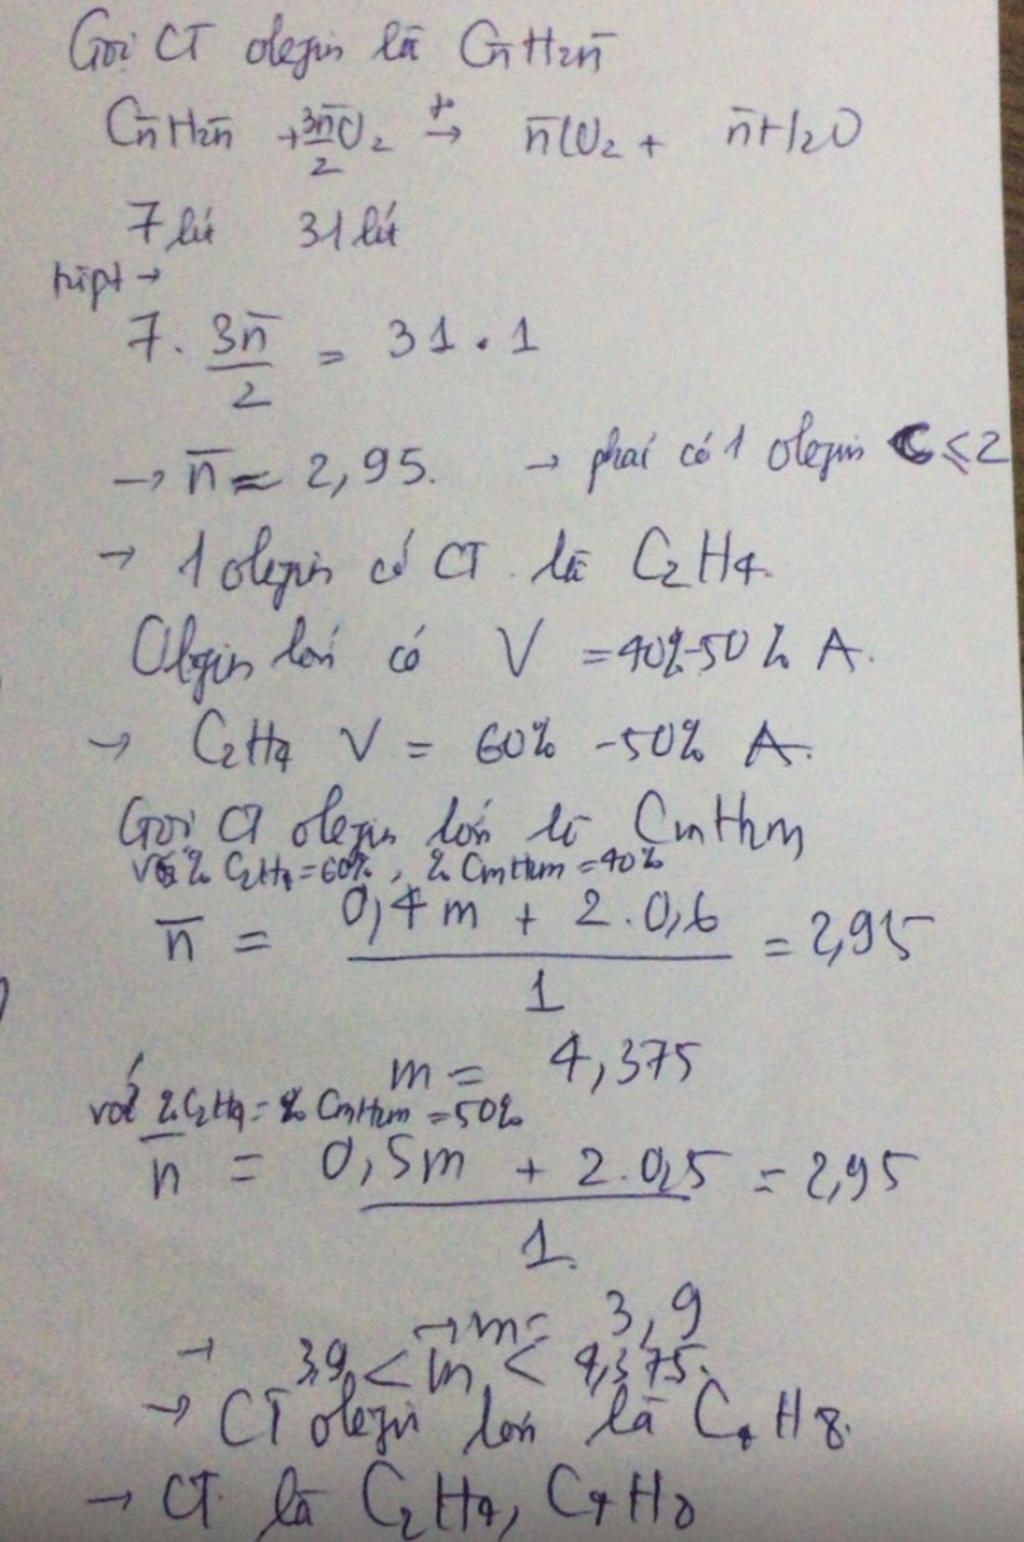 Gọi CT olefin là Cn̄H2n̄
Cn̄H2n̄ + 3n̄/2 O2 t°→ n̄CO2 + n̄H2O
7 lít 31 lít
→
7. 3n̄/2 = 31.1
→ n̄ = 2,95. → phải có 1 olefin C ≤ 2
→ 1 olefin có CT là C2H4.
Olefin lớn có V = 40%-50% A.
→ C2H4 V = 60% -50% A.
Gọi CT olefin lớn là CmH2m
Với % C2H4 = 60%, % CmH2m = 40%
n̄ = (0,4m + 2.0,6)/1 = 2,95
m = 4,375
với % C2H4 = % CmH2m = 50%
n̄ = (0,5m + 2.0,5)/1 = 2,95
→ m = 3,9
→ 3,9 < m < 4,375.
→ CT olefin lớn là C4H8.
→ CT là C2H4, C4H8